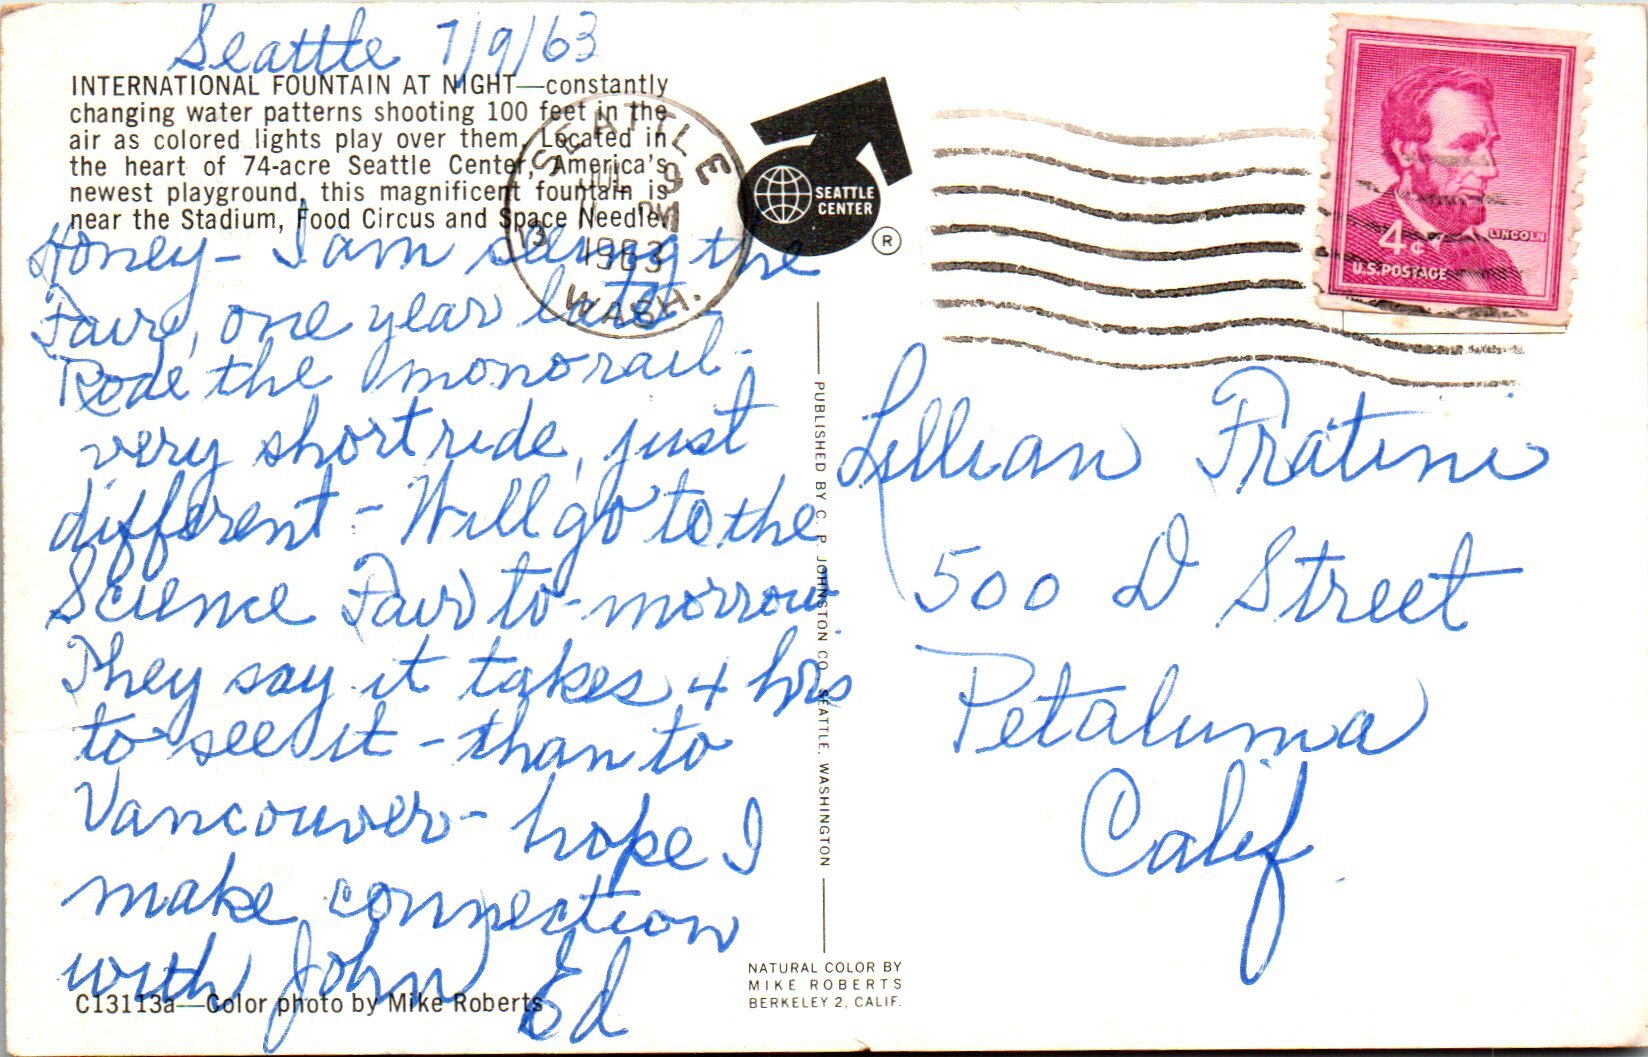 Seattle 7/9/63
INTERNATIONAL FOUNTAIN AT NIGHT—constantly
changing water patterns shooting 100 feet in the
air as colored lights play over them. Located in
the heart of 74-acre Seattle Center, America's
newest playground, this magnificent fountain is
near the Stadium, Food Circus and Space Needle.
Honey - I am seeing the
Faire, one year late -
Rode the monorail -
very short ride, just
different - Will go to the
Science Fair to-morrow
They say it takes 4 hrs
to see it - than to
Vancouver - hope I
make connection
with John
Ed
C13113a—Color photo by Mike Roberts
SEATTLE
JUL 9
PM
1963
WASH.
SEATTLE
CENTER
®
PUBLISHED BY C. P. JOHNSTON CO. SEATTLE, WASHINGTON
NATURAL COLOR BY
MIKE ROBERTS
BERKELEY 2, CALIF.
LINCOLN
4¢
U.S. POSTAGE
Lillian Fratini
500 D Street
Petaluma
Calif.